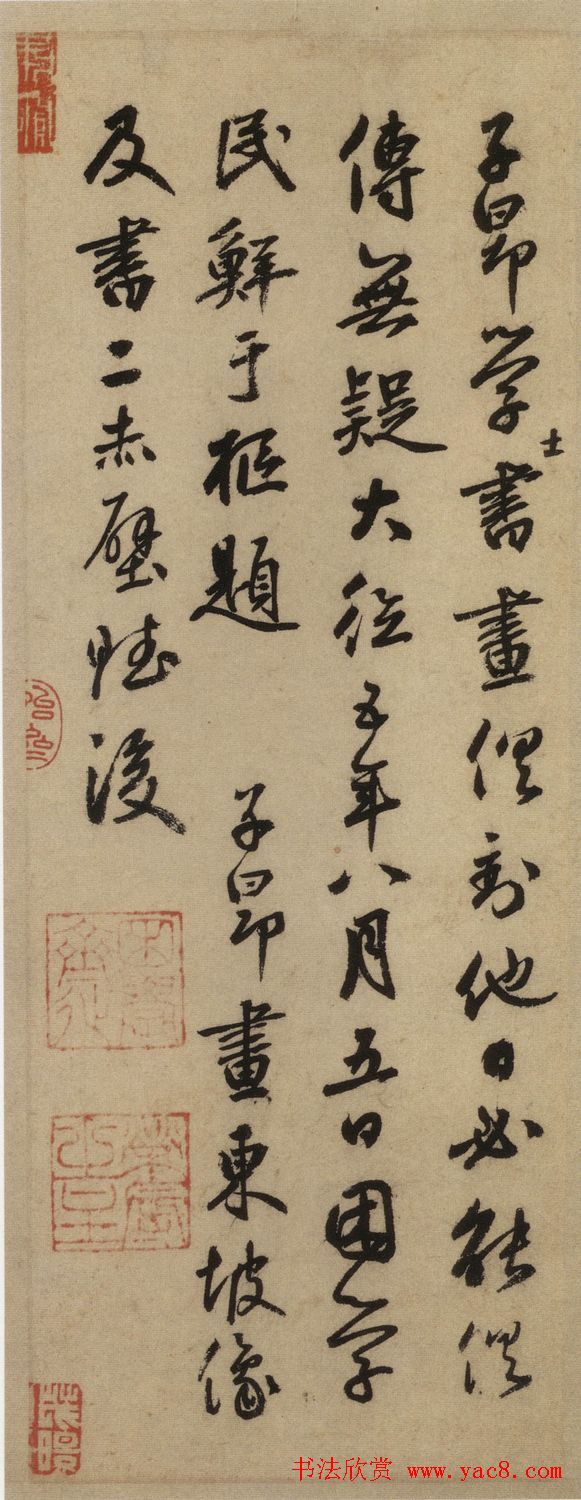 子昂學士書畫俱到他日必能俱
傳無疑大德五年八月五日困學
民鮮于樞題　子昂畫東坡像
及書二赤壁賦後
书法欣赏 www.yac8.com